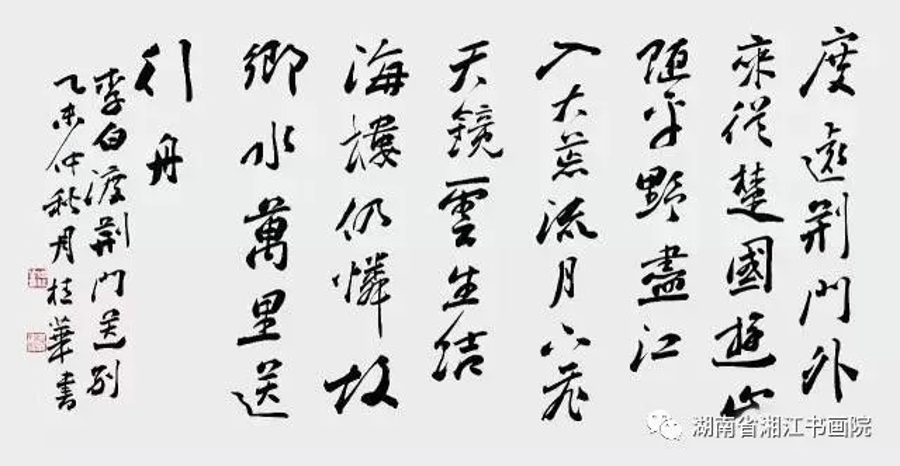 度遠荆門外
來從楚國遊山
随平野盡江
入大荒流月下飛
天鏡雲生结
海樓仍憐故
鄉水萬里送
行舟
李白渡荆門送别
乙未仲秋月桂華書
湖南省湘江书画院